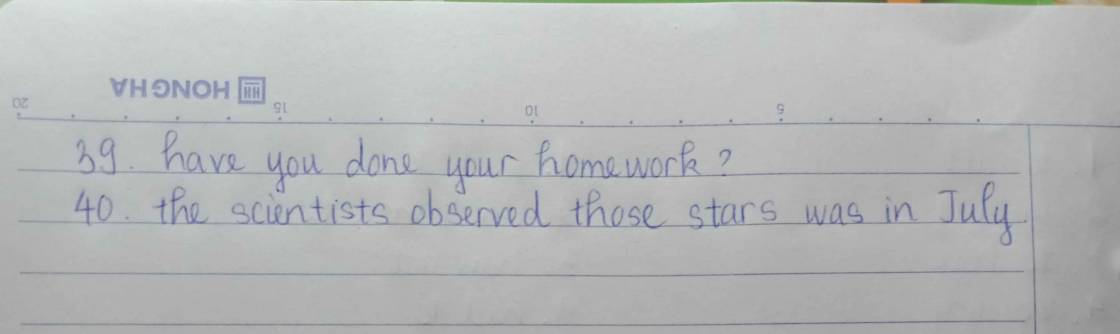 HONGHA
20 15 10 5
39. have you done your homework?
40. the scientists observed those stars was in July